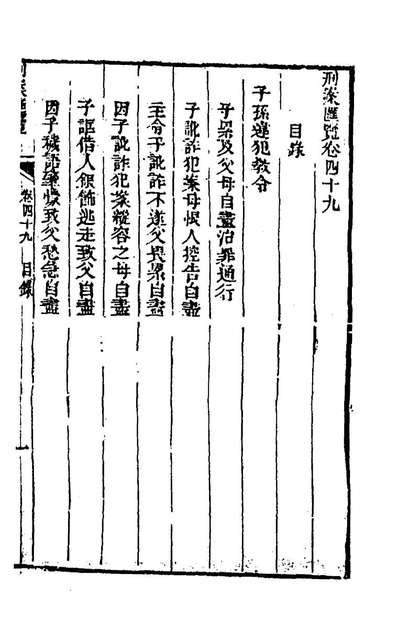 刑案匯覽卷四十九
目錄
子孫違犯教令
子累及父母自盡治罪通行
子訛詐犯案母恨人控告自盡
主令子訛詐不遂父畏累自盡
因子訛詐犯案縱容之母自盡
子誆借人銀飾逃走致父自盡
因子穢語致父愁急自盡
卷四十九 目錄 一